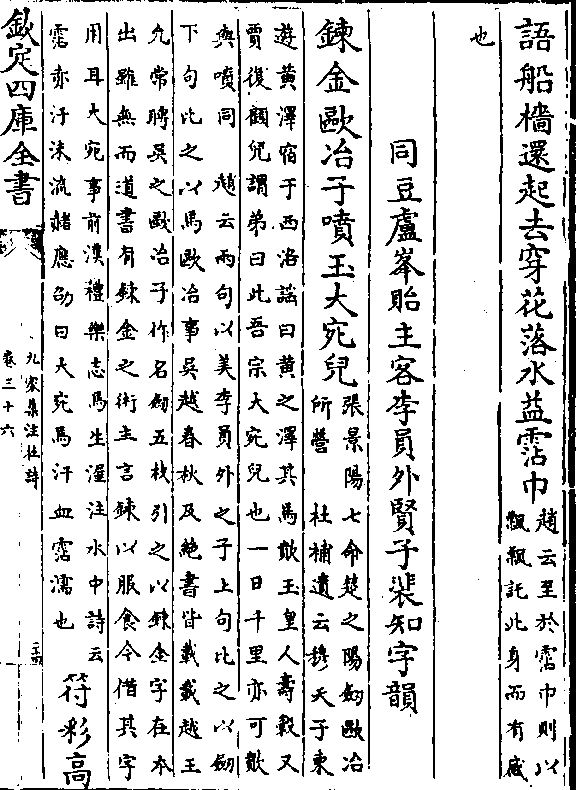 語船檣還起去穿花落水益霑巾趙云至於霑巾則以
飄飄託此身而有感
也
同豆盧峯貽主客李員外賢子棐知字韻
鍊金歐冶子噴玉大宛兒張景陽七命楚之陽劒歐冶
所營 杜補遺云穆天子東
遊黄澤宿于西洛謡曰黄之澤其馬歕玉皇人夀穀又
賈復顧兒謂弟曰此吾宗大宛兒也一日千里亦可歕
與噴同 趙云兩句以美李員外之子上句比之以劒
下句比之以馬歐冶事吳越春秋及絶書皆載載越王
允常聘吳之歐冶子作名劒五枚引之以鍊金字在本
出雖無而道書有鍊金之術主言鍊以服食今借其字
用耳大宛事前漢禮樂志馬生渥注水中詩云
霑赤汗沬流赭應劭曰大宛馬汗血霑濡也 符彩高
欽定四庫全書
九家集注杜詩
卷三十六